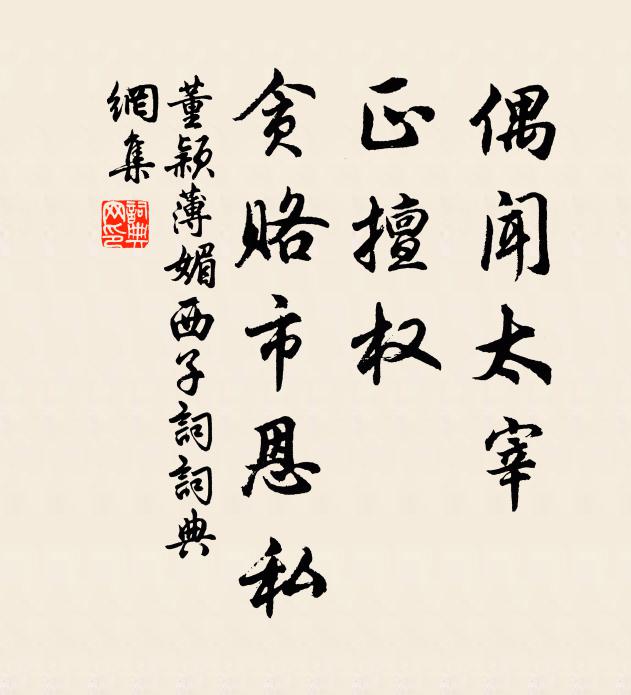 偶闻太宰
正擅权
贪赂市恩私
董颖薄媚西子詞詞典
網集
詞典网印